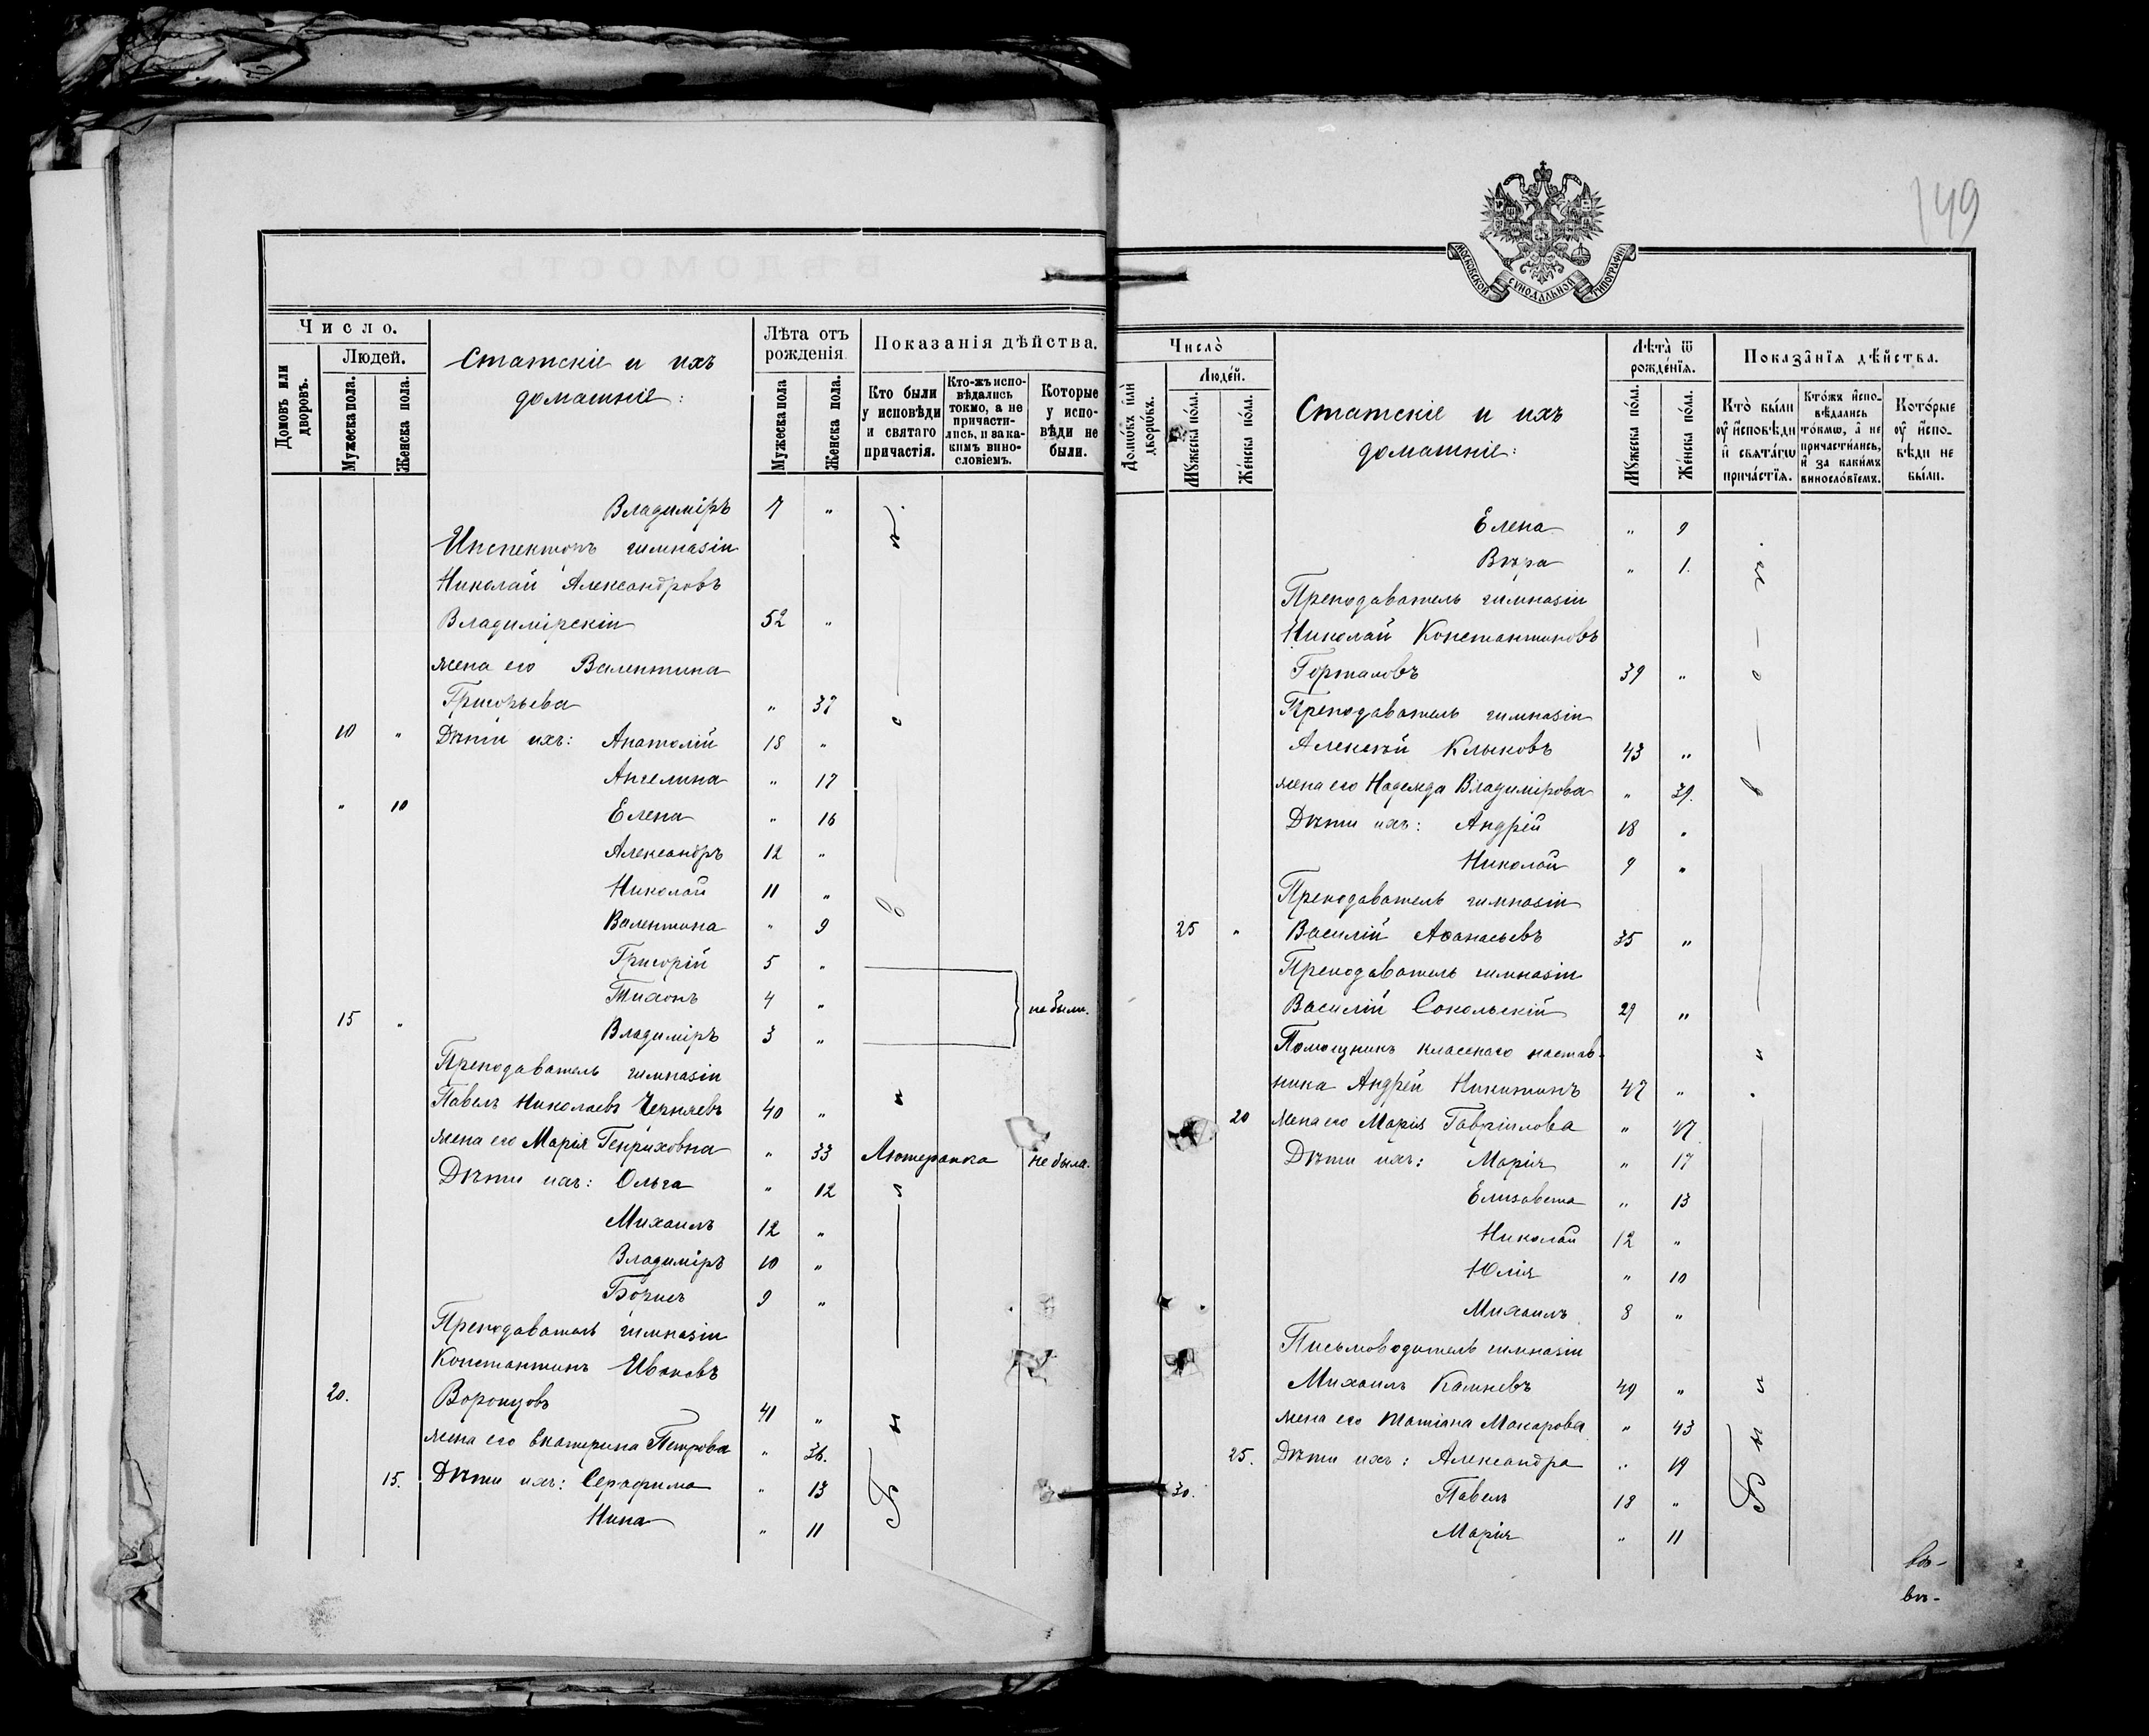 Число.
Людей.
Домовъ или дворовъ.
Мужеска пола.
Женска пола.
Статскіе и ихъ
домашніе:
Лѣта отъ
рожденія.
Мужеска пола
Женска пола.
Показанія дѣйства.
Кто были
у исповѣди
и святаго
причастія.
Кто-жъ испо-
вѣдались
токмо, а не
причасти-
лись, и за ка-
кимъ вино-
словіемъ.
Которые
у испо-
вѣди не
были.
Владиміръ 7 "
Инспекторъ гимназіи
Николай Александровъ
Владимірскій 52 "
жена его Валентина
Григорьева " 37
10 " Дѣти ихъ: Анатолій 18 "
Ангелина " 17
" 10 Елена " 16
Александръ 12 "
Николай 11 "
Валентина " 9
Григорій 5 "
Тихонъ 4 " не были.
15 " Владиміръ 3 "
Преподаватель гимназіи
Павелъ Николаевъ 40 "
жена его Марія Генриховна " 33 Лютеранка не была.
Дѣти ихъ: Ольга " 12
Михаилъ 12 "
Владиміръ 10 "
Борисъ 9 "
Преподаватель гимназіи
Константинъ Ивановъ
20. Воронцовъ 41 "
жена его Екатерина Петрова " 36.
15. Дѣти ихъ: Серафима " 13
Нина " 11
149
МОСКОВСКОЙ СѴНОДАЛЬНОЙ ТИПОГРАФІИ
Число̀
Люде́й.
Домѡ́въ и҆лѝ дворѡ́въ.
Мꙋ́жеска по́ла.
Же́нска по́ла.
Статскіе и ихъ
домашніе:
Лѣ́та ѿ
рожде́нїѧ.
Мꙋ́жеска по́ла.
Же́нска по́ла.
Показа̑нїѧ дѣ́йства.
Кто̀ бы́ли
оу҆ и҆сповѣ́ди
и҆ свята́гѡ
прича́стїѧ.
Кто́жъ и҆спо-
вѣ́дались
то́кмѡ, а҆ не
причасти́лись,
и҆ за каки́мъ
виносло́вїемъ.
Кото́рые
оу҆ и҆спо-
вѣ́ди не
бы́ли.
Елена " 9
Вѣра " 1.
Преподаватель гимназіи
Николай Константиновъ
Горталовъ 39 "
Преподаватель гимназіи
Алексѣй Клыковъ 43 "
жена его Надежда Владимірова " 39.
Дѣти ихъ: Андрей 18 "
Николай 9 "
Преподаватель гимназіи
25 " Василій Аѳанасьевъ 35 "
Преподаватель гимназіи
Василій Сокольскій 29 "
Помощникъ класснаго настав-
ника Андрей Никитинъ 47 "
20 жена его Марія Гавріилова " 47
Дѣти ихъ: Марія " 17
Елизавета " 13
Николай 12 "
Юлія " 10
Михаилъ 8 "
Письмоводитель гимназіи
Михаилъ Камневъ 49 "
жена его Татіана Макарова " 43
25. Дѣти ихъ: Александра " 19
30. Павелъ 18 "
Марія " 11